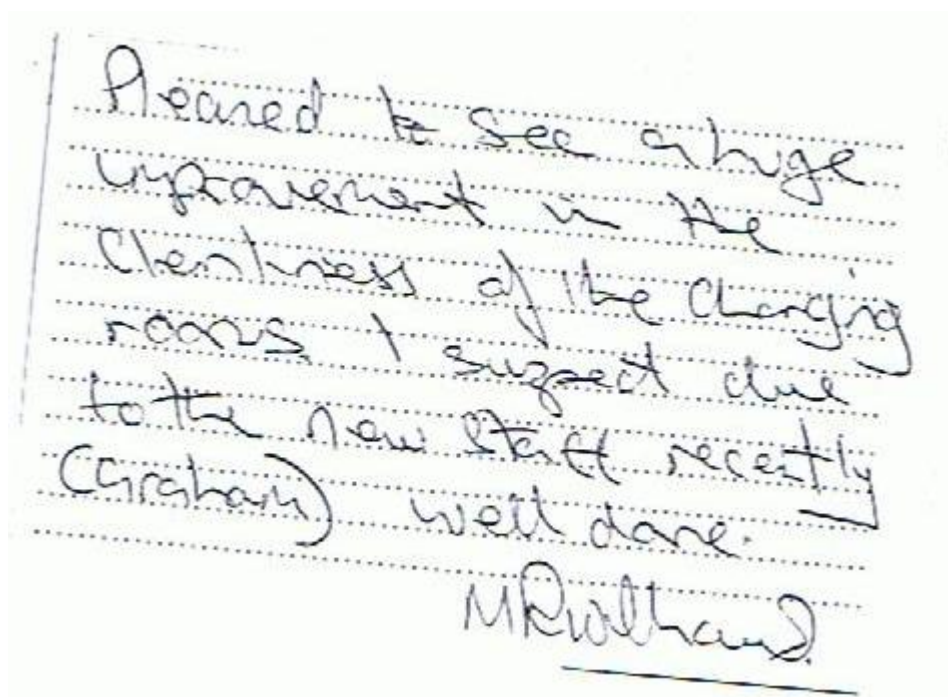 Pleased to see a huge
improvement in the
Clenliness of the Changing
rooms, I suspect due
to the new staff recently
(Graham) well done.